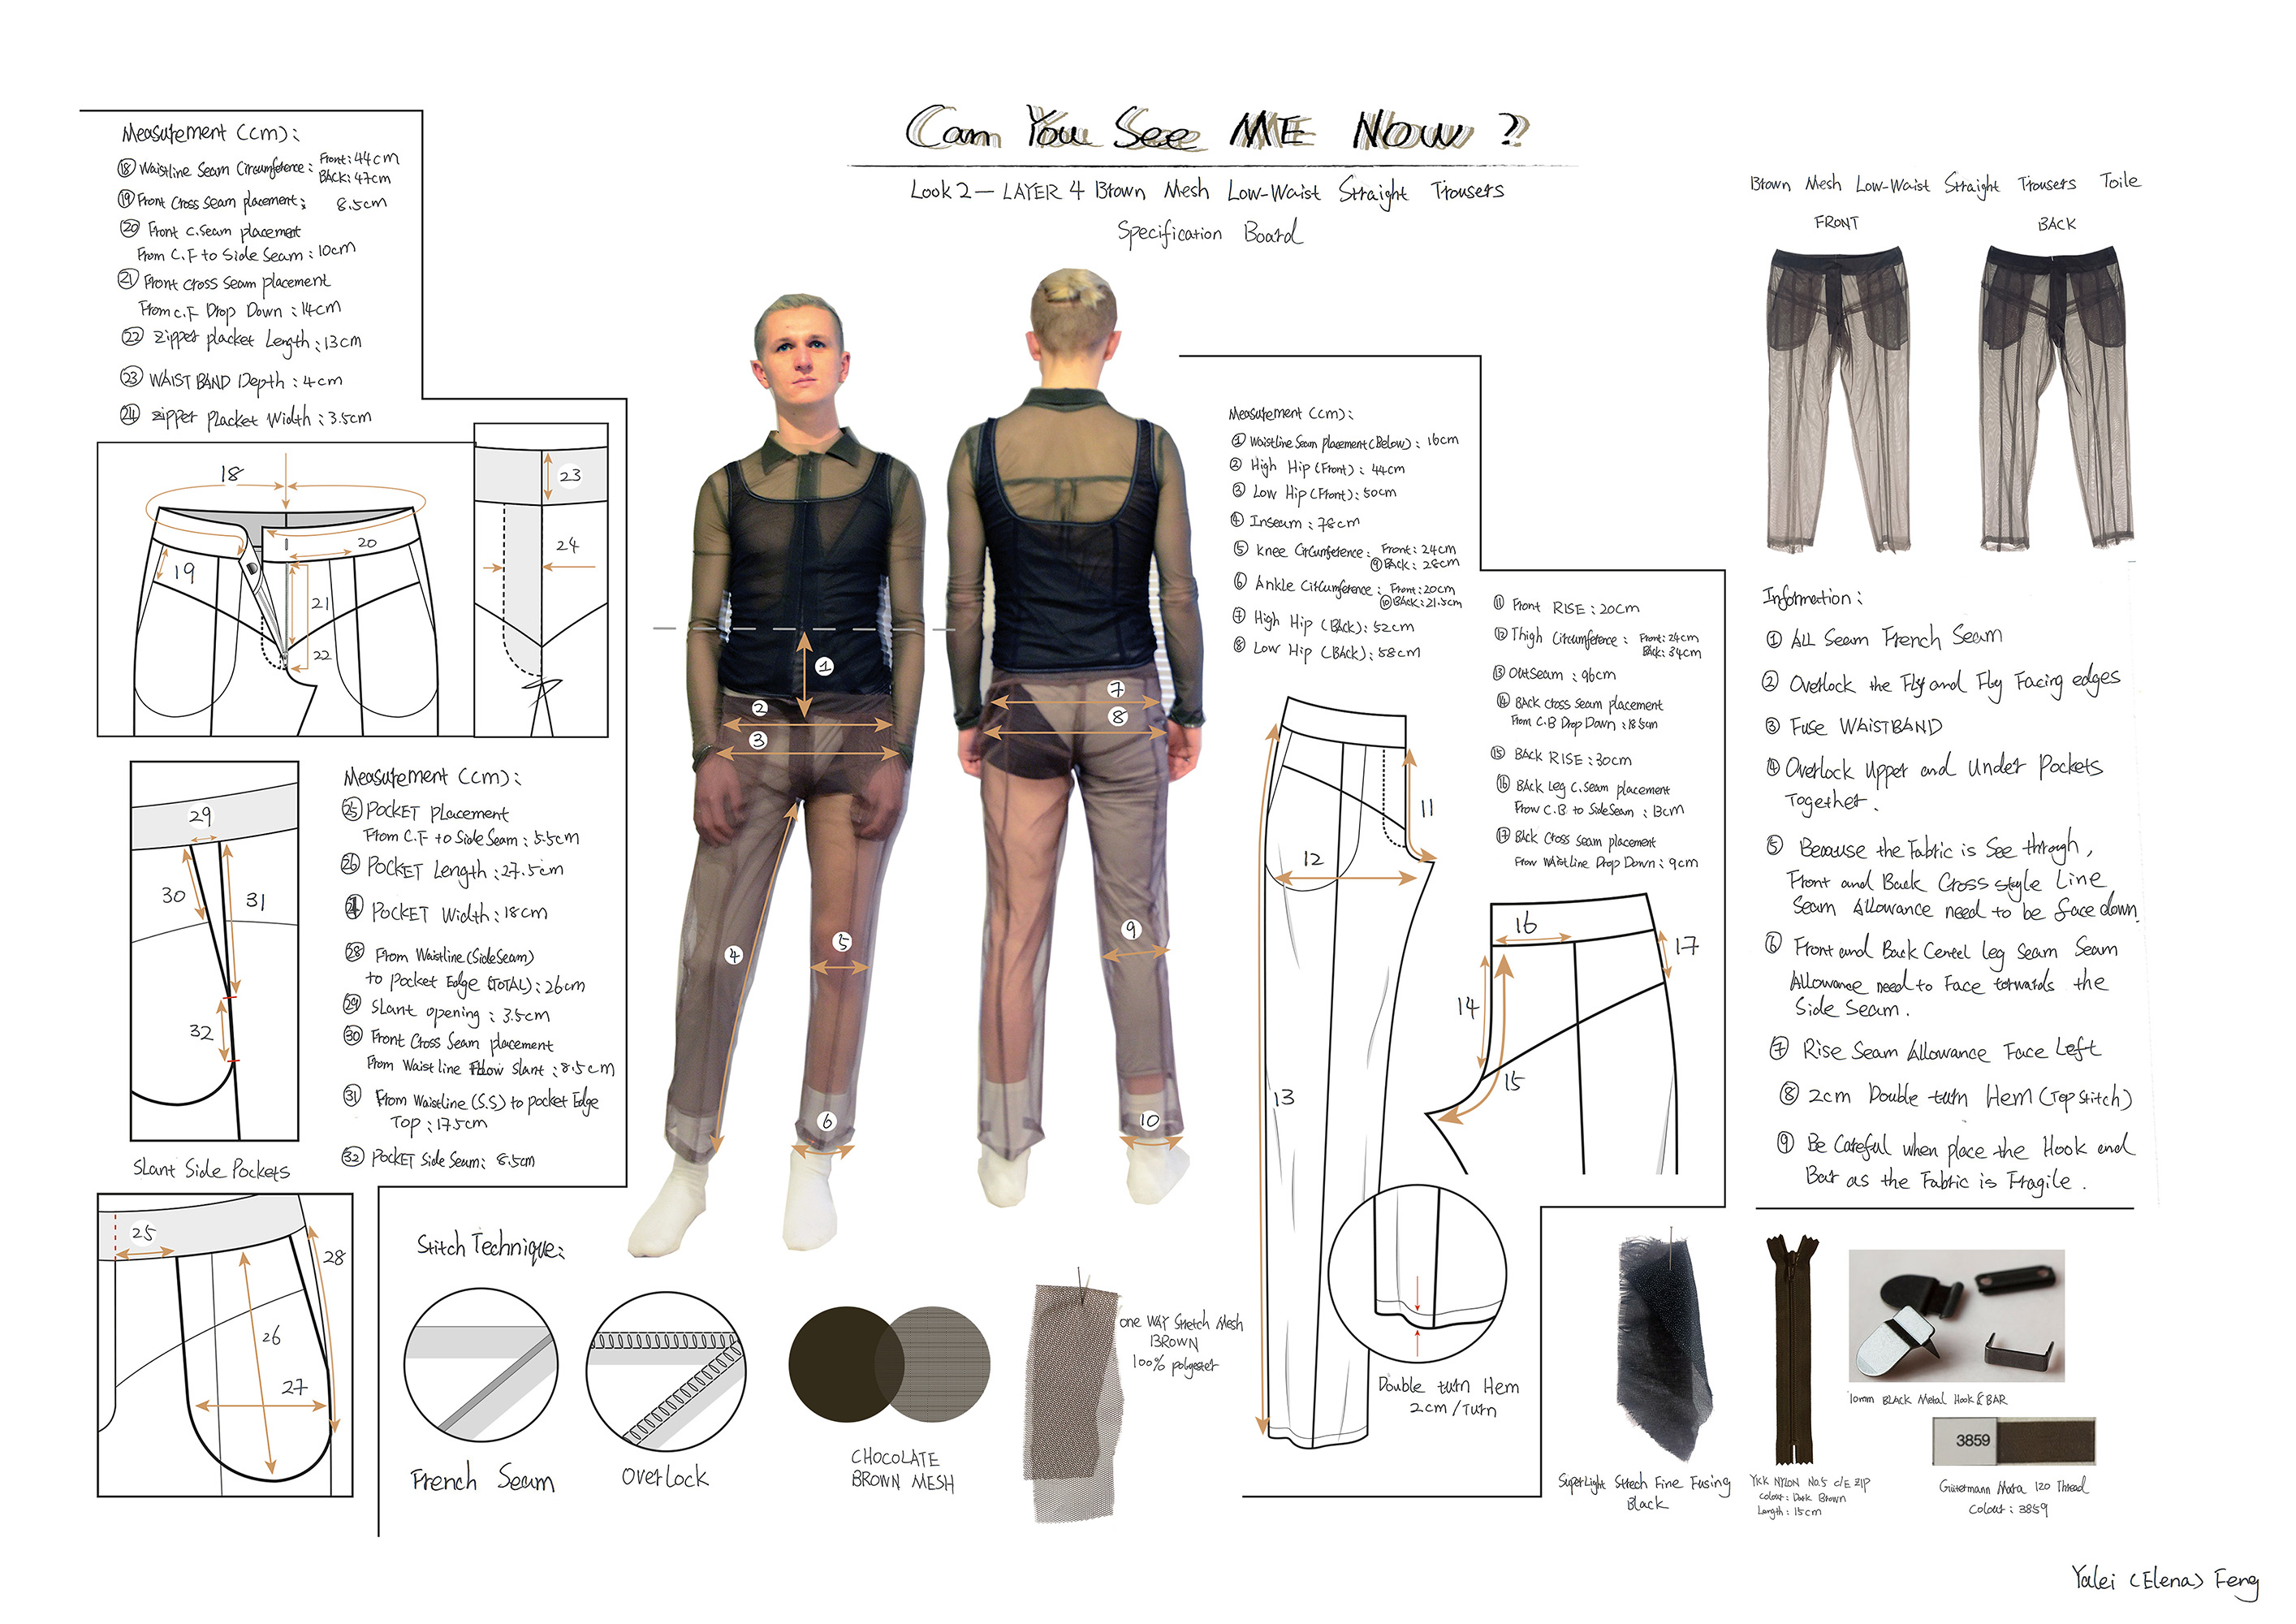 Can You See ME NOW ?
Look 2 — LAYER 4 Brown Mesh Low-Waist Straight Trousers
Specification Board
Measurement (cm):
⑱ Waistline Seam Circumference: Front: 44cm
BACK: 47cm
⑲ Front Cross Seam placement: 8.5cm
⑳ Front C.Seam placement
From C.F to Side Seam: 10cm
㉑ Front Cross Seam placement
From C.F Drop Down: 14cm
㉒ Zipper placket Length: 13cm
㉓ WAIST BAND Depth: 4cm
㉔ Zipper Placket Width: 3.5cm
18
19
20
21
22
23
24
Measurement (cm):
㉕ POCKET Placement
From C.F to Side Seam: 5.5cm
㉖ POCKET Length: 27.5cm
POCKET Width: 18cm
㉘ From Waistline (Side Seam)
to Pocket Edge (TOTAL): 26cm
㉙ Slant opening: 3.5cm
㉚ Front Cross Seam placement
From Waist line Slant: 8.5cm
㉛ From Waistline (S.S) to pocket Edge
Top: 17.5cm
㉜ POCKET Side Seam: 8.5cm
29
30
31
32
Slant Side Pockets
25
26
27
28
Stitch Technique:
French Seam
Overlock
CHOCOLATE
BROWN MESH
one WAY Stretch Mesh
BROWN
100% polyester
1
2
3
4
5
6
7
8
9
10
Measurement (cm):
① Waistline Seam Placement (Below): 16cm
② High Hip (Front): 44cm
③ Low Hip (Front): 50cm
④ Inseam: 78cm
⑤ Knee Circumference: Front: 24cm
⑨ BACK: 28cm
⑥ Ankle Circumference: Front: 20cm
⑩ BACK: 21.5cm
⑦ High Hip (BACK): 52cm
⑧ Low Hip (BACK): 58cm
⑪ Front RISE: 20cm
⑫ Thigh Circumference: Front: 24cm
BACK: 34cm
⑬ OutSeam: 96cm
⑭ BACK Cross Seam placement
From C.B Drop Down: 18.5cm
⑮ BACK RISE: 30cm
⑯ BACK Leg C.Seam placement
From C.B. to Side Seam: 13cm
⑰ BACK Cross Seam placement
From Waistline Drop Down: 9cm
11
12
13
14
15
16
17
Double turn Hem
2cm/Turn
Brown Mesh Low-Waist Straight Trousers Toile
FRONT
BACK
Information:
① ALL Seam French Seam
② Overlock the Fly and Fly Facing edges
③ Fuse WAISTBAND
④ Overlock Upper and Under Pockets
Together.
⑤ Because the Fabric is See through,
Front and Back Cross style Line
Seam Allowance need to be face down.
⑥ Front and Back Center leg Seam Seam
Allowance need to Face torwards the
Side Seam.
⑦ Rise Seam Allowance Face Left
⑧ 2cm Double turn Hem (Top Stitch)
⑨ Be Careful when place the Hook and
Bar as the Fabric is Fragile.
SuperLight Strech Fine Fusing
Black
YKK NYLON No.5 C/E ZIP
Colour: Dark Brown
Length: 15cm
10mm BLACK Metal Hook & BAR
3859
Gütermann Mara 120 Thread
Colour: 3859
Yalei (Elena) Feng